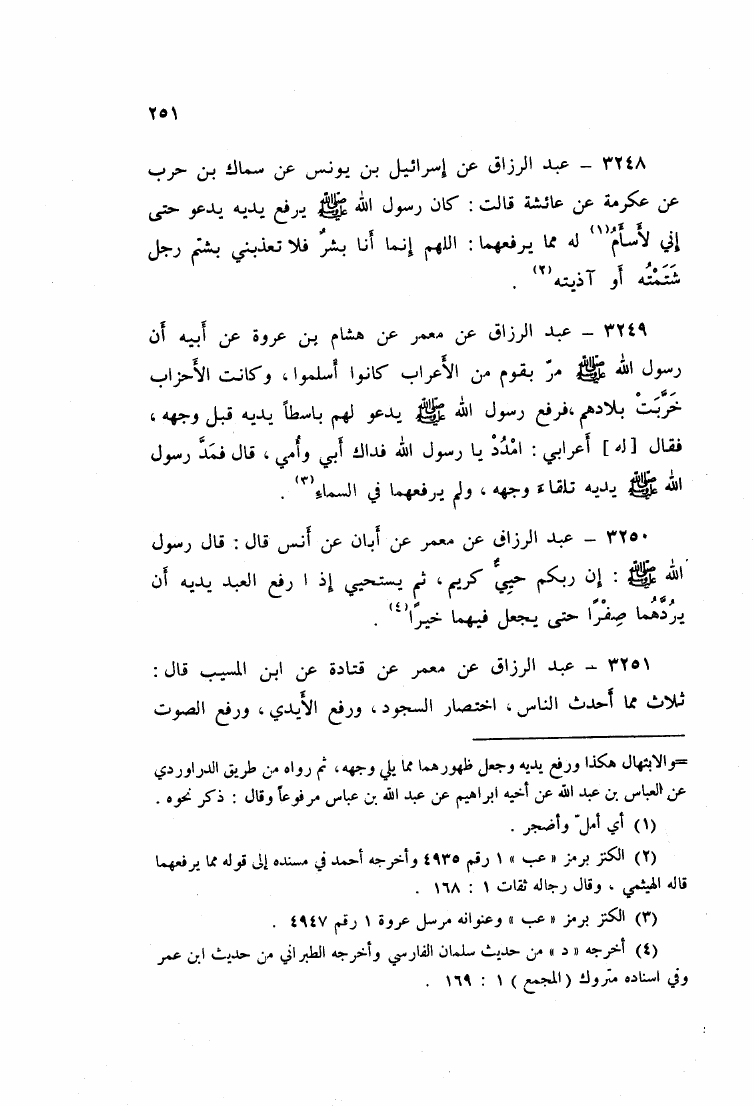 ٢٥١
٣٢٤٨ – عبد الرزاق عن إسرائيل بن يونس عن سماك بن حرب
عن عكرمة عن عائشة قالت : كان رسول الله ﷺ يرفع يديه يدعو حتى
إني لأَسأَمُ(١) له مما يرفعهما : اللهم إنما أنا بشرٌ فلا تعذبني بشتم رجل
شَتَمْتُه أو آذيته(٢) .
٣٢٤٩ – عبد الرزاق عن معمر عن هشام بن عروة عن أبيه أن
رسول الله ﷺ مرّ بقوم من الأعراب كانوا أسلموا ، وكانت الأحزاب
خَرَّبَتْ بلادهم ،فرفع رسول الله ﷺ يدعو لهم باسطاً يديه قبل وجهه ،
فقال [ له ] أعرابي : امْدُدْ يا رسول الله فداك أبي وأُمي ، قال فمَدَّ رسول
الله ﷺ يديه تلقاء وجهه ، ولم يرفعهما في السماءِ(٣) .
٣٢٥٠ – عبد الرزاق عن معمر عن أبان عن أنس قال : قال رسول
الله ﷺ : إن ربكم حَيِيٌّ كريم ، ثم يستحيي إذ ا رفع العبد يديه أن
يردَّهُما صِفْرًا حتى يجعل فيهما خيرًا(٤) .
٣٢٥١ – عبد الرزاق عن معمر عن قتادة عن ابن المسيب قال :
ثلاث مما أحدث الناس ، اختصار السجود ، ورفع الأيدي ، ورفع الصوت
=والابتهال هكذا ورفع يديه وجعل ظهورهما مما يلي وجهه، ثم رواه من طريق الدراوردي
عن العباس بن عبد الله عن أخيه ابراهيم عن عبد الله بن عباس مرفوعاً وقال : ذكر نحوه .
(١) أي أملّ وأضجر .
(٢) الكنز برمز « عب » ١ رقم ٤٩٣٥ وأخرجه أحمد في مسنده إلى قوله مما يرفعهما
قاله الهيثمي ، وقال رجاله ثقات ١ : ١٦٨ .
(٣) الكنز برمز « عب » وعنوانه مرسل عروة ١ رقم ٤٩٤٧ .
(٤) أخرجه « د » من حديث سلمان الفارسي وأخرجه الطبراني من حديث ابن عمر
وفي اسناده متروك ( المجمع ) ١ : ١٦٩ .